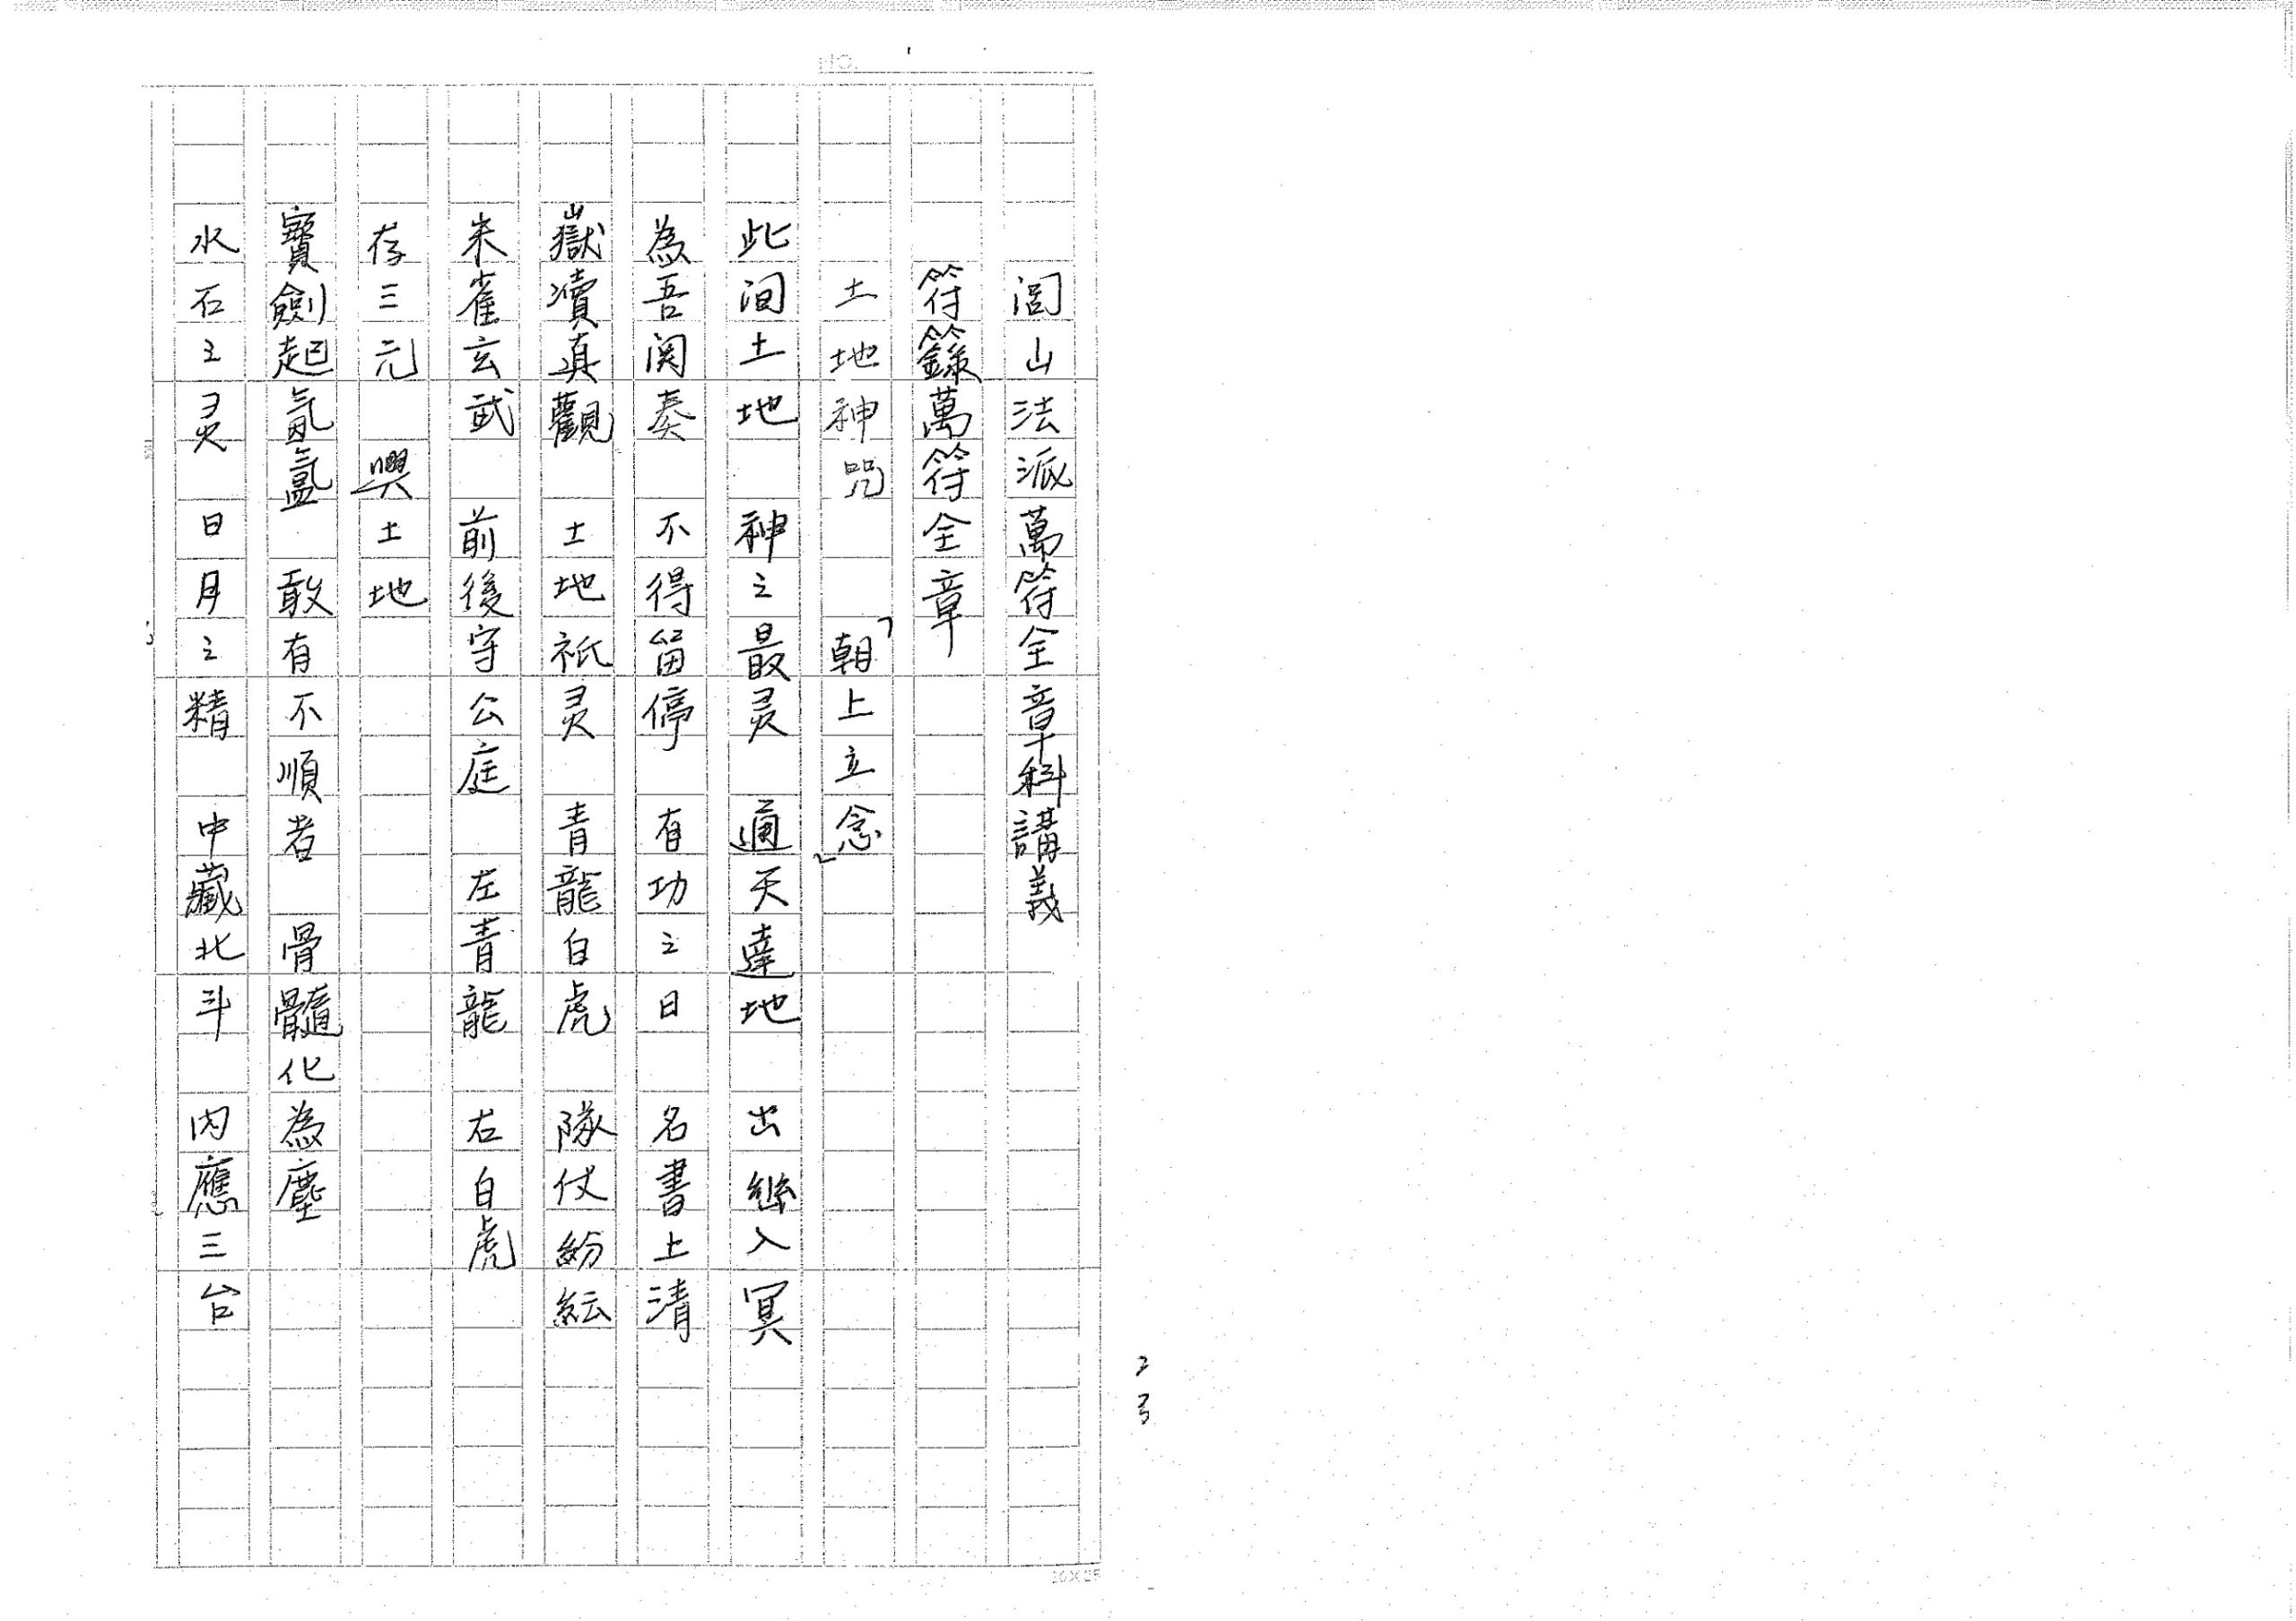 NO.
閭山法派萬符全章科講義
符籙萬符全章
土地神咒　「朝上立念」
此间土地　神之最灵　通天達地　出幽入冥
為吾関奏　不得留停　有功之日　名書上清
嶽凟真觀　土地祇灵　青龍白虎　隊仗紛紜
朱雀玄武　前後守公庭　左青龍　右白虎
存三元　興土地
寶劍起氤氳　敢有不順者　骨髓化為塵
水石之灵　日月之精　中藏北斗　内應三台
20X25